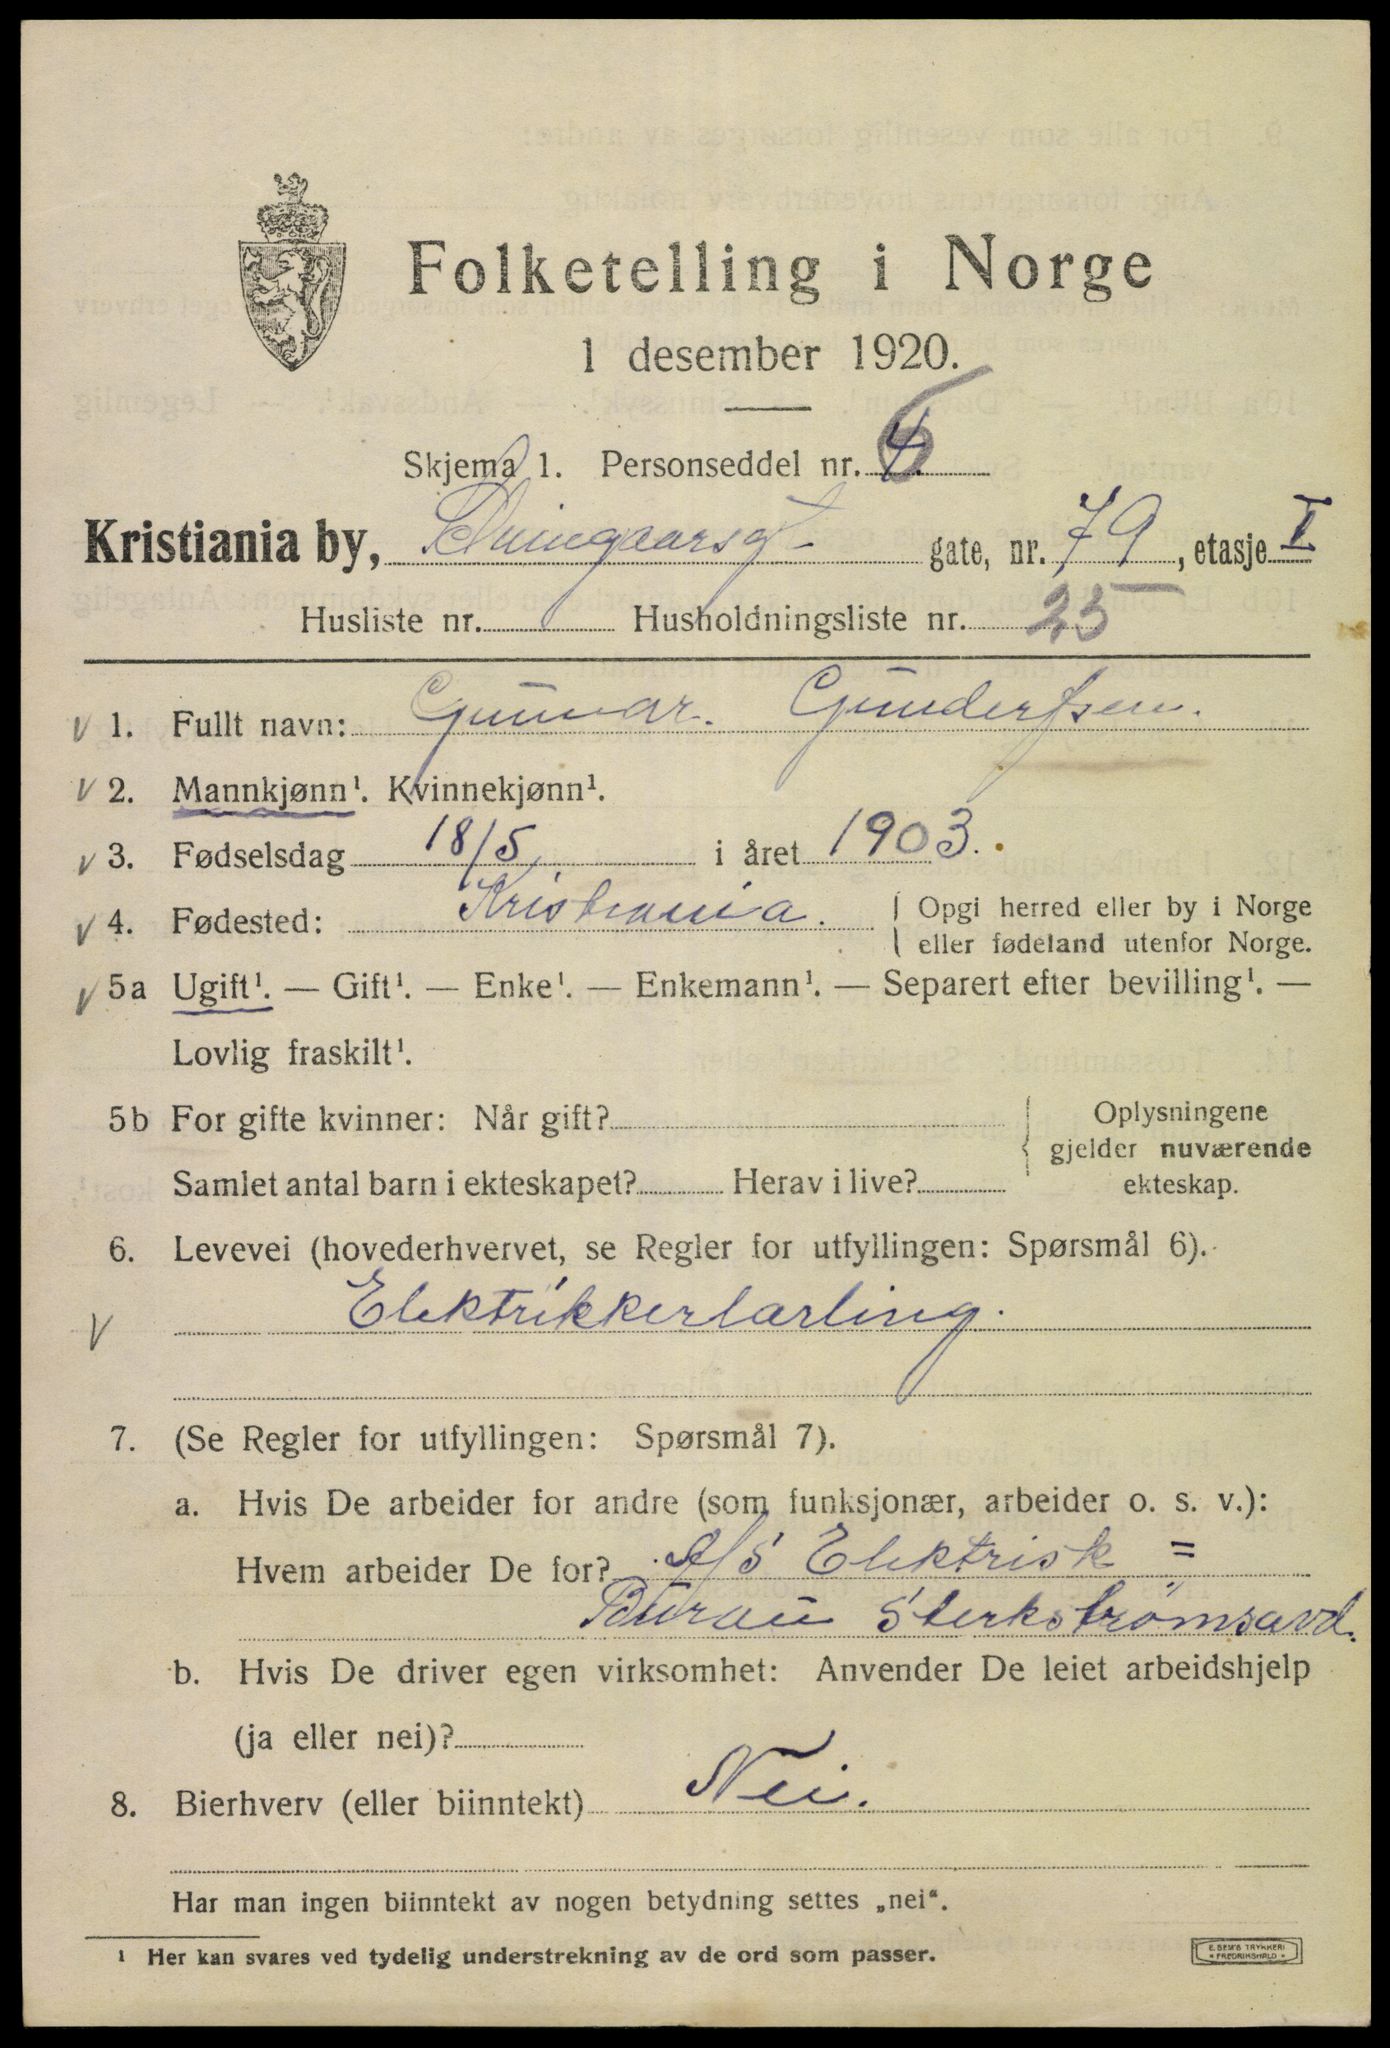 Folketelling i Norge
1 desember 1920.
Skjema 1. Personseddel nr. 6
Kristiania by, gate, nr. 79, etasje I
Husliste nr. Husholdningsliste nr. 25
V 1. Fullt navn: Gunnar. Gunderssen.
V 2. Mannkjønn¹. Kvinnekjønn¹.
V 3. Fødselsdag 18/5 i året 1903.
V 4. Fødested: Kristiania. { Opgi herred eller by i Norge
eller fødeland utenfor Norge.
V 5a Ugift¹. — Gift¹. — Enke¹. — Enkemann¹. — Separert efter bevilling¹. —
Lovlig fraskilt¹.
5b For gifte kvinner: Når gift? { Oplysningene
gjelder nuværende
Samlet antal barn i ekteskapet? Herav i live? ekteskap.
6. Levevei (hovederhvervet, se Regler for utfyllingen: Spørsmål 6).
V Elektrikkerlærling.
7. (Se Regler for utfyllingen: Spørsmål 7).
a. Hvis De arbeider for andre (som funksjonær, arbeider o. s. v.):
Hvem arbeider De for? A/S Elektrisk =
Bürau Sterkströmsavd.
b. Hvis De driver egen virksomhet: Anvender De leiet arbeidshjelp
(ja eller nei)?
8. Bierhverv (eller biinntekt) Nei.
Har man ingen biinntekt av nogen betydning settes „nei“.
¹ Her kan svares ved tydelig understrekning av de ord som passer.
E. SEM'S TRYKKERI
* FREDRIKSHALD *